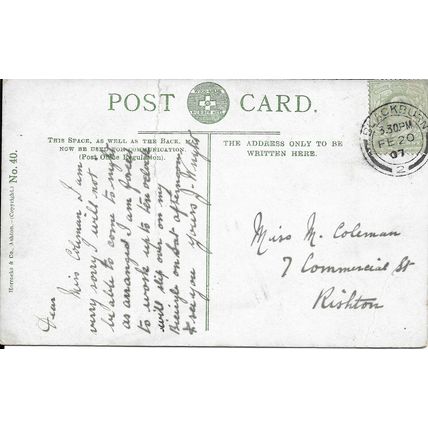 POST CARD.
THIS SPACE, AS WELL AS THE BACK, MAY
NOW BE USED FOR COMMUNICATION.
(Post Office Regulation).
THE ADDRESS ONLY TO BE
WRITTEN HERE.
BLACKBURN
3.30PM
FE 20
07
2
No. 40.
(Copyright.)
Horrocks & Co. Ashton.
Dear Miss Coleman I am
very sorry I will not
be able to come to night
as arranged I am forced
to work up to ten oclock
will slip over on my
Bicycle on Sat afternoon
& see you yours J. Wright
Miss M. Coleman
7 Commercial St
Rishton